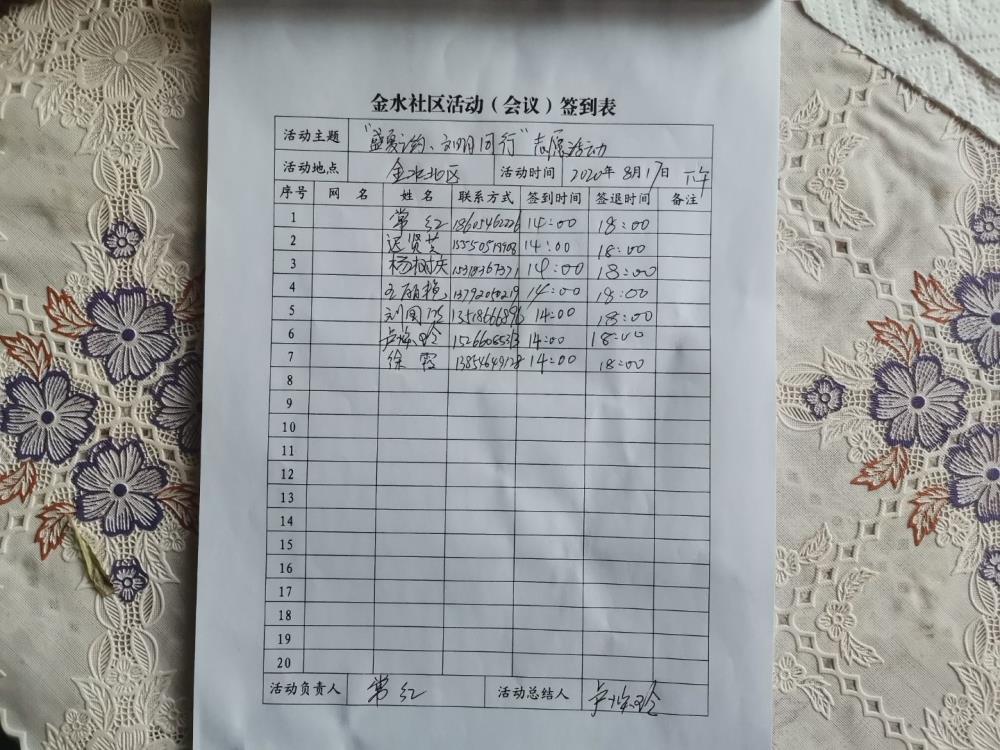 金水社区活动（会议）签到表
活动主题 "盛夏之约、文明同行"志愿活动
活动地点 金水社区 活动时间 2020年8月17日 下午
序号 网 名 姓 名 联系方式 签到时间 签退时间 备注
1 常红 18605462226 14:00 18:00
2 迟贤芝 14:00 18:00
3 14:00 18:00
4 14:00 18:00
5 14:00 18:00
6 14:00 18:00
7 徐霞 14:00 18:00
8
9
10
11
12
13
14
15
16
17
18
19
20
活动负责人 常红 活动总结人